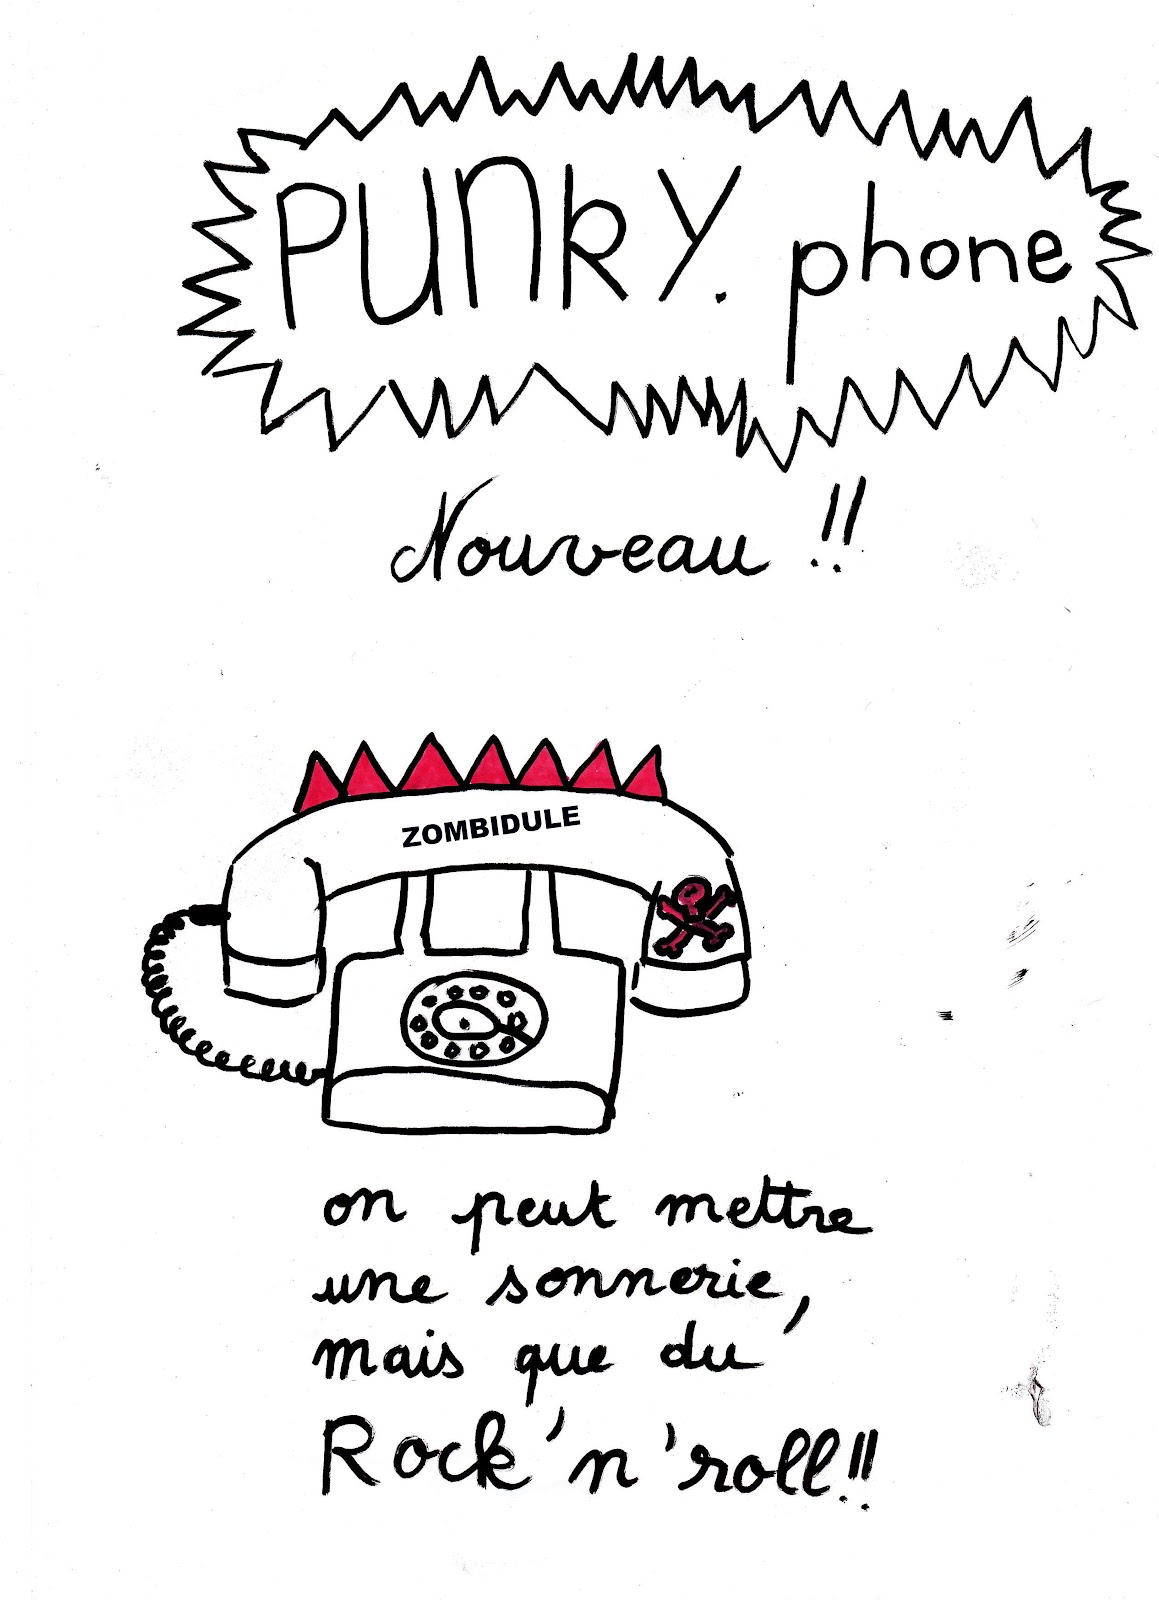 PUNKY. phone
Nouveau !!
ZOMBIDULE
on peut mettre
une sonnerie,
mais que du
Rock'n'roll!!